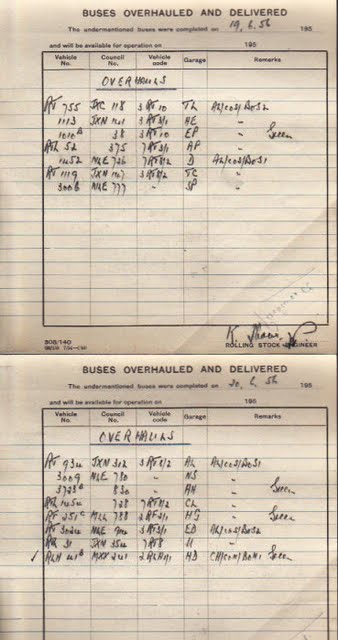 BUSES OVERHAULED AND DELIVERED
The undermentioned buses were completed on 19.6.56 195
and will be available for operation on 195
Vehicle No. Council No. Vehicle code Garage Remarks
OVERHAULS
RT 755 JXC 118 3RT10 TL
1113 JXN 141 3RT3/1 AE "
1010 38 3RT10 EP " Green
RTL 52 375 7RT3/1 AP "
1452 NLE 726 7RT8/2 D
RT 1119 JXN 147 3RT3/2 TC "
3008 NLE 777 " SP "
K. Shave
308/140 ROLLING STOCK ENGINEER
BUSES OVERHAULED AND DELIVERED
The undermentioned buses were completed on 20.6.56 195
and will be available for operation on 195
Vehicle No. Council No. Vehicle code Garage Remarks
OVERHAULS
RT 934 JXN 312 3RT8/2 AL
3009 NLE 780 " NS "
3723 830 " " Green
RTL 1454 728 7RT8/2 CL "
RF 251 MLL 788 2RF2/1 HG " Green
RT 3024 NLE 3RT3/1 ED
RTL 31 JXN 354 7RT8 U "
✓ RLH 41 MXX 241 2RLH1/1 HD Green